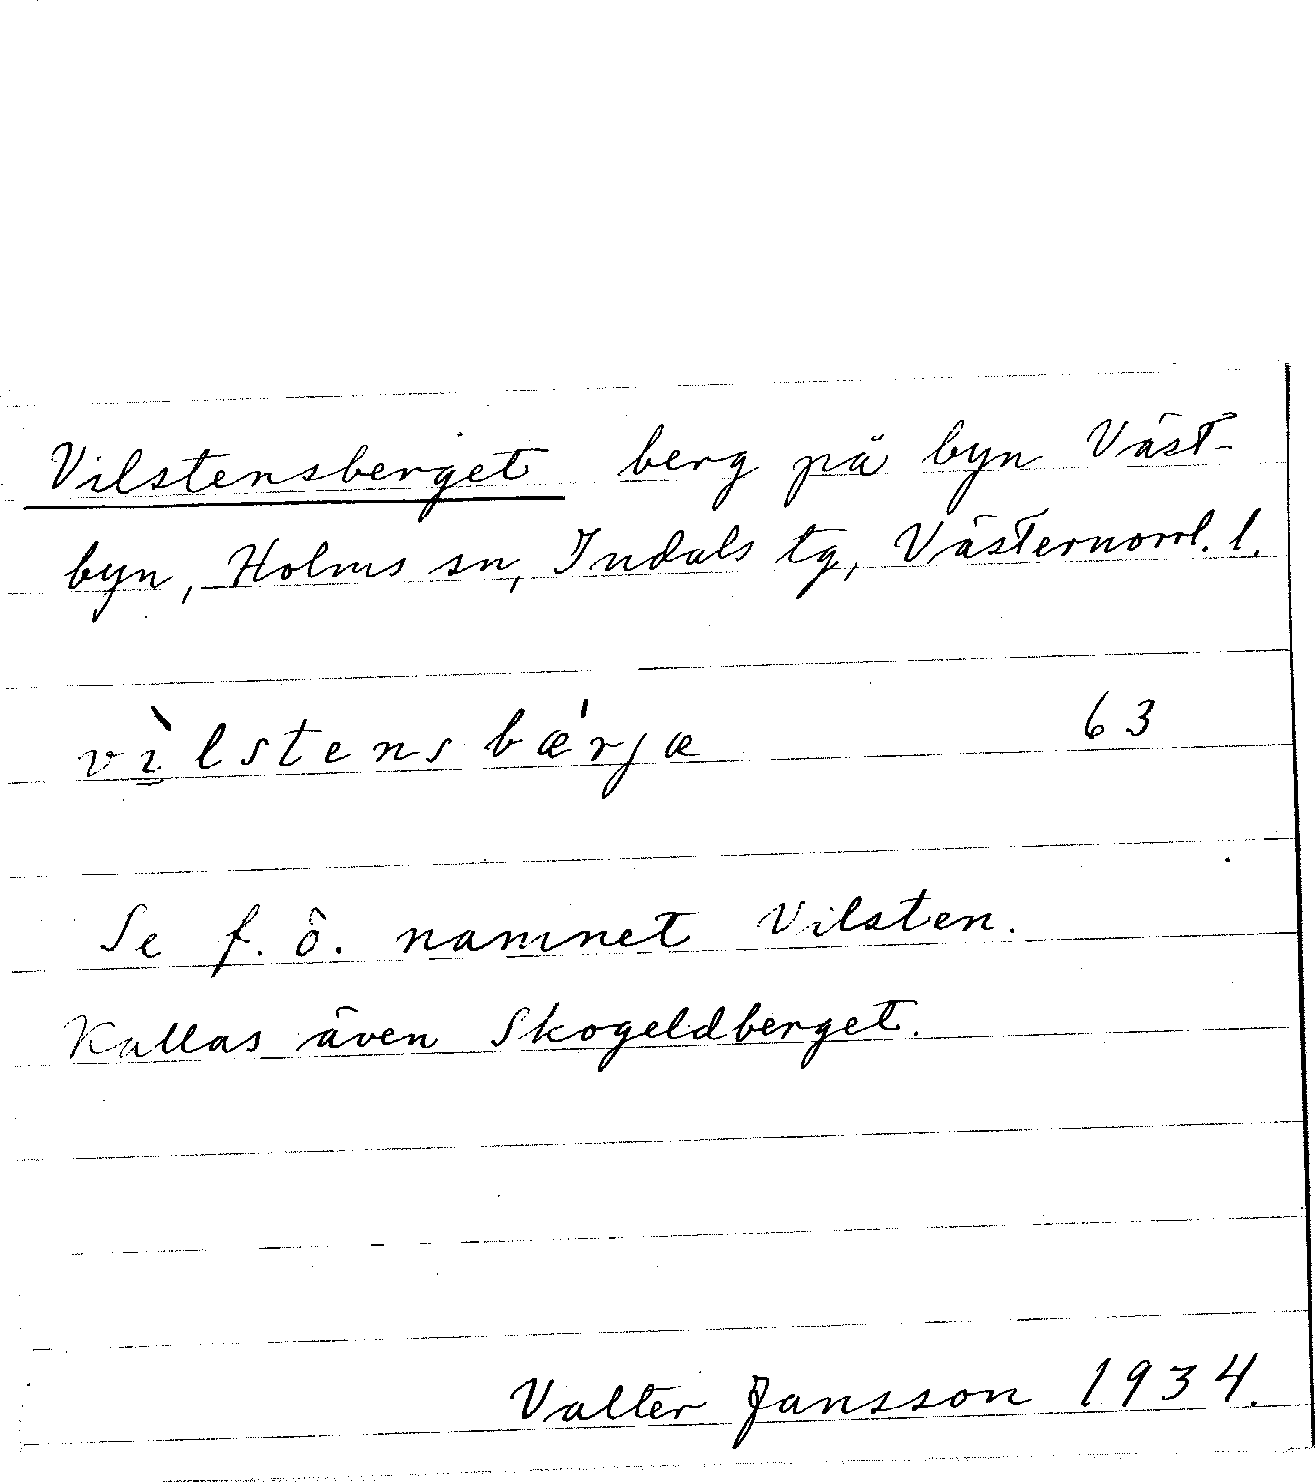 Vilstensberget berg på byn Väst-
byn, Holms sn, Indals tg, Västernorrl. l.
vìlstensbæ'rjæ 63
Se f. ö. namnet Vilsten.
Kallas även Skogeldberget.
Valter Jansson 1934.